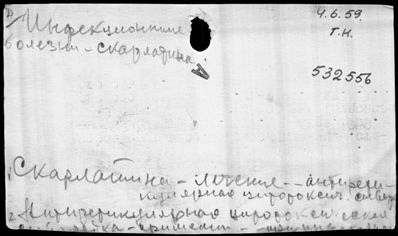 Инфекционные
болезни - скарлатина.
4.6.59.
Т.Н.
532556
1. Скарлатина - лечение - антирети-
кулярная цитотоксич.
2. Антиретикулярная цитотоксическая